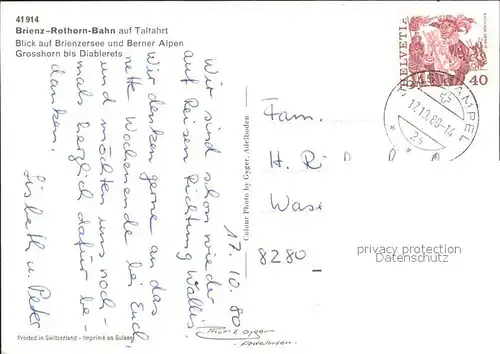 41914
Brienz-Rothorn-Bahn auf Talfahrt
Blick auf Brienzersee und Berner Alpen
Grosshorn bis Diablerets
17.10.80
Wir sind schon wieder
auf Reisen Richtung Wallis.
Wir denken gerne an das
nette Wochenende bei Euch
und möchten uns noch-
mals herzlich dafür be-
danken.
Lisbeth u. Peter
Printed in Switzerland - Imprimé en Suisse
Colour Photo by Gyger, Adelboden
Gyger
Adelboden
HELVETIA
40
17.10.80-14
Fam.
H. Ri
Was
8280
privacy protection
service